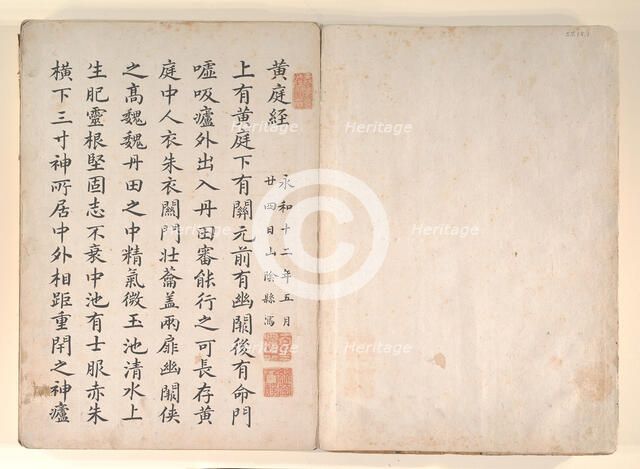 黃庭經
永和十二年五月
廿四日山陰縣寫
上有黃庭下有關元前有幽闕後有命門
噓吸廬外出入丹田審能行之可長存黃
庭中人衣朱衣關門壯籥蓋兩扉幽闕俠
之高魏魏丹田之中精氣微玉池清水上
生肥靈根堅固志不衰中池有士服赤朱
橫下三寸神所居中外相距重閇之神廬
Heritage
Heritage
Heritage
Heritage
Heritage
Heritage
Heritage
Heritage